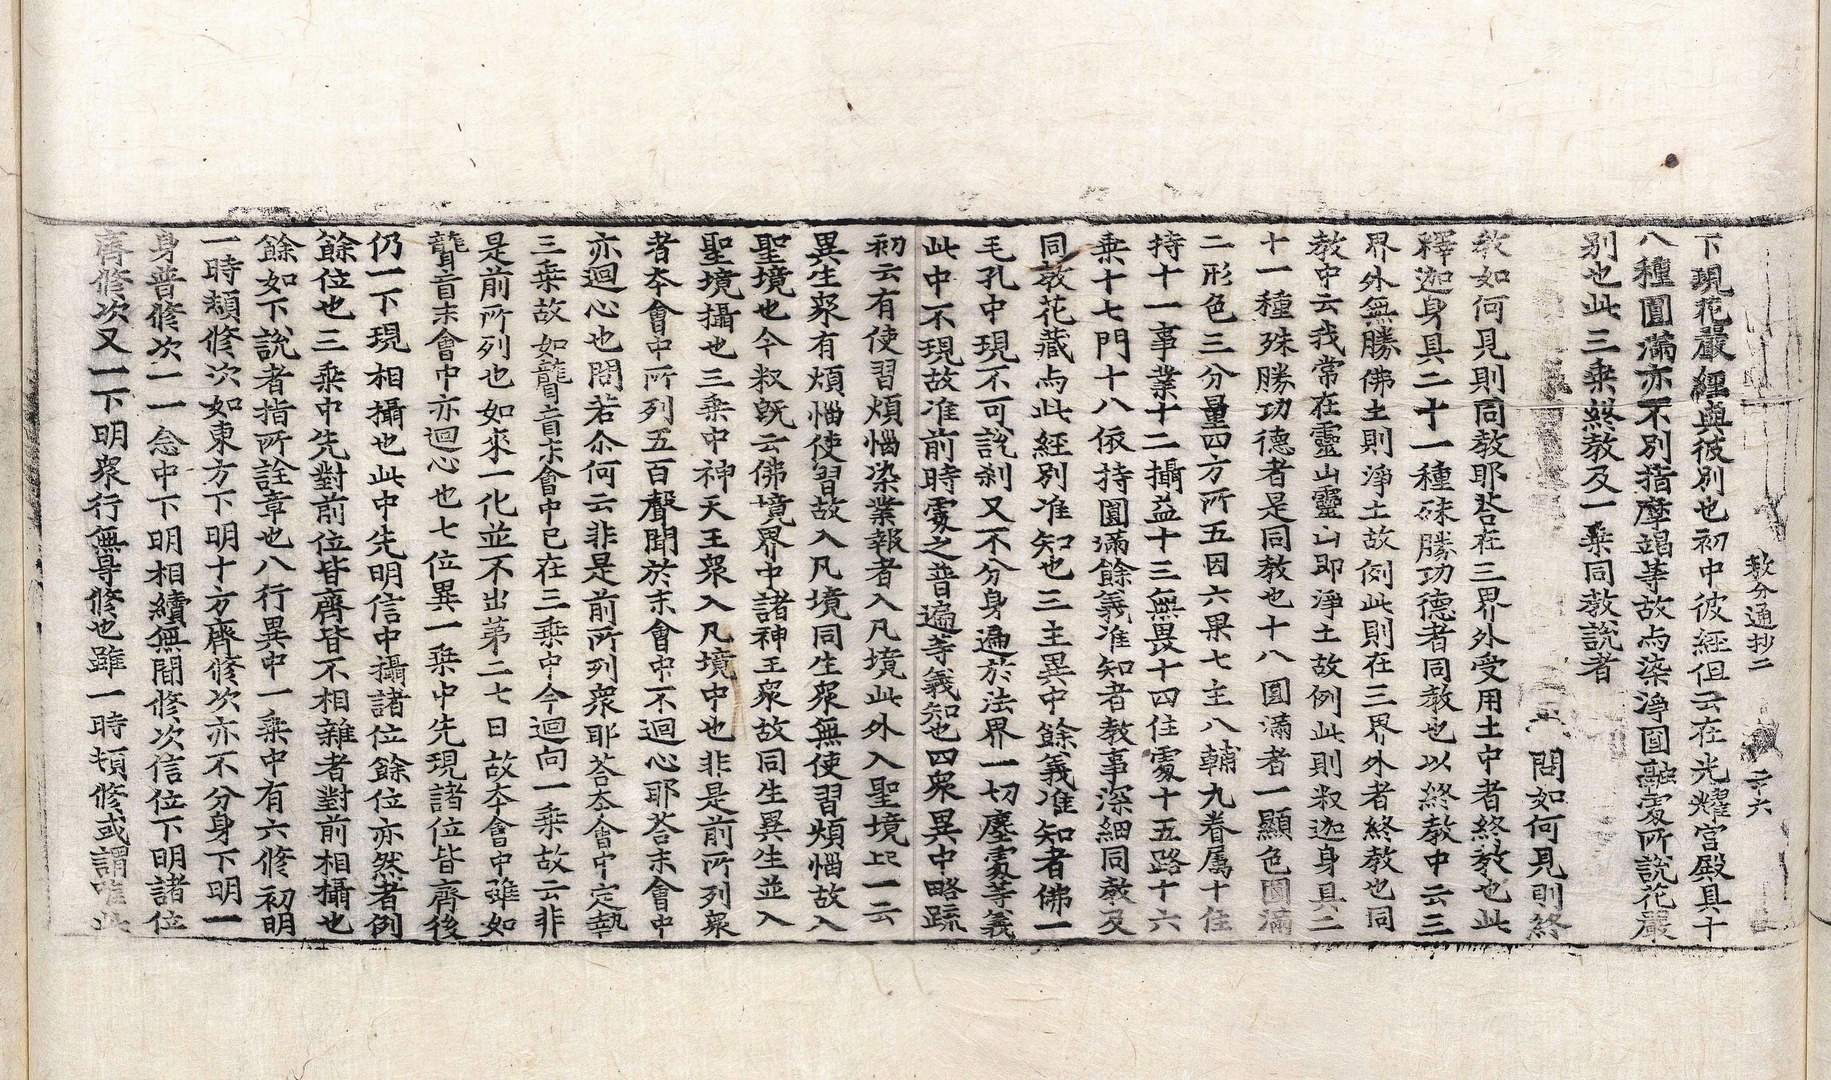 教分通抄二 　 二六
下現花嚴經與彼別也初中彼經但云在光耀宮殿具十
八種圓滿亦不別指摩竭等故与染淨圓融處所說花嚴
別也此三乘終教及一乘同教說者
問如何見則終
教如何見則同教耶荅在三界外受用土中者終教也此
釋迦身具二十一種殊勝功德者同教也以終教中云三
界外無勝佛土則淨土故例此則在三界外者終教也同
教中云我常在靈山靈山即淨土故例此則釈迦身具二
十一種殊勝功德者是同教也十八圓滿者一顯色圓滿
二形色三分量四方所五因六果七主八輔九眷属十住
持十一事業十二攝益十三無畏十四住處十五路十六
乘十七門十八依持圓滿餘義准知者教事深細同教及
同教花藏与此經別准知也三主異中餘義准知者佛一
毛孔中現不可說刹又不分身遍於法界一切塵處等義
此中不現故准前時處之普遍等義知也四衆異中略疏
初云有使習煩惱染業報者入凡境此外入聖境上一云
異生衆有煩惱使習故入凡境同生衆無使習煩惱故入
聖境也今叙旣云佛境界中諸神王衆故同生異生並入
聖境攝也三乘中神天王衆入凡境中也非是前所列衆
者夲會中所列五百聲聞於末會中不迴心耶荅末會中
亦迴心也問若尒何云非是前所列衆耶荅夲會中定執
三乘故如聾盲末會中已在三乘中今迴向一乘故云非
是前所列也如來一化並不出第二七日故夲會中雖如
聾盲末會中亦迴心也七位異一乘中先現諸位皆齊後
仍一下現相攝也此中先明信中攝諸位餘位亦然者例
餘位也三乘中先對前位皆齊皆不相雜者對前相攝也
餘如下說者指所詮章也八行異中一乘中有六修初明
一時頓修次如東方下明十方齊修次亦不分身下明一
身普修次一一念中下明相續無間修次信位下明諸位
齊修次又一下明衆行無导修也雖一時頓修或謂唯此